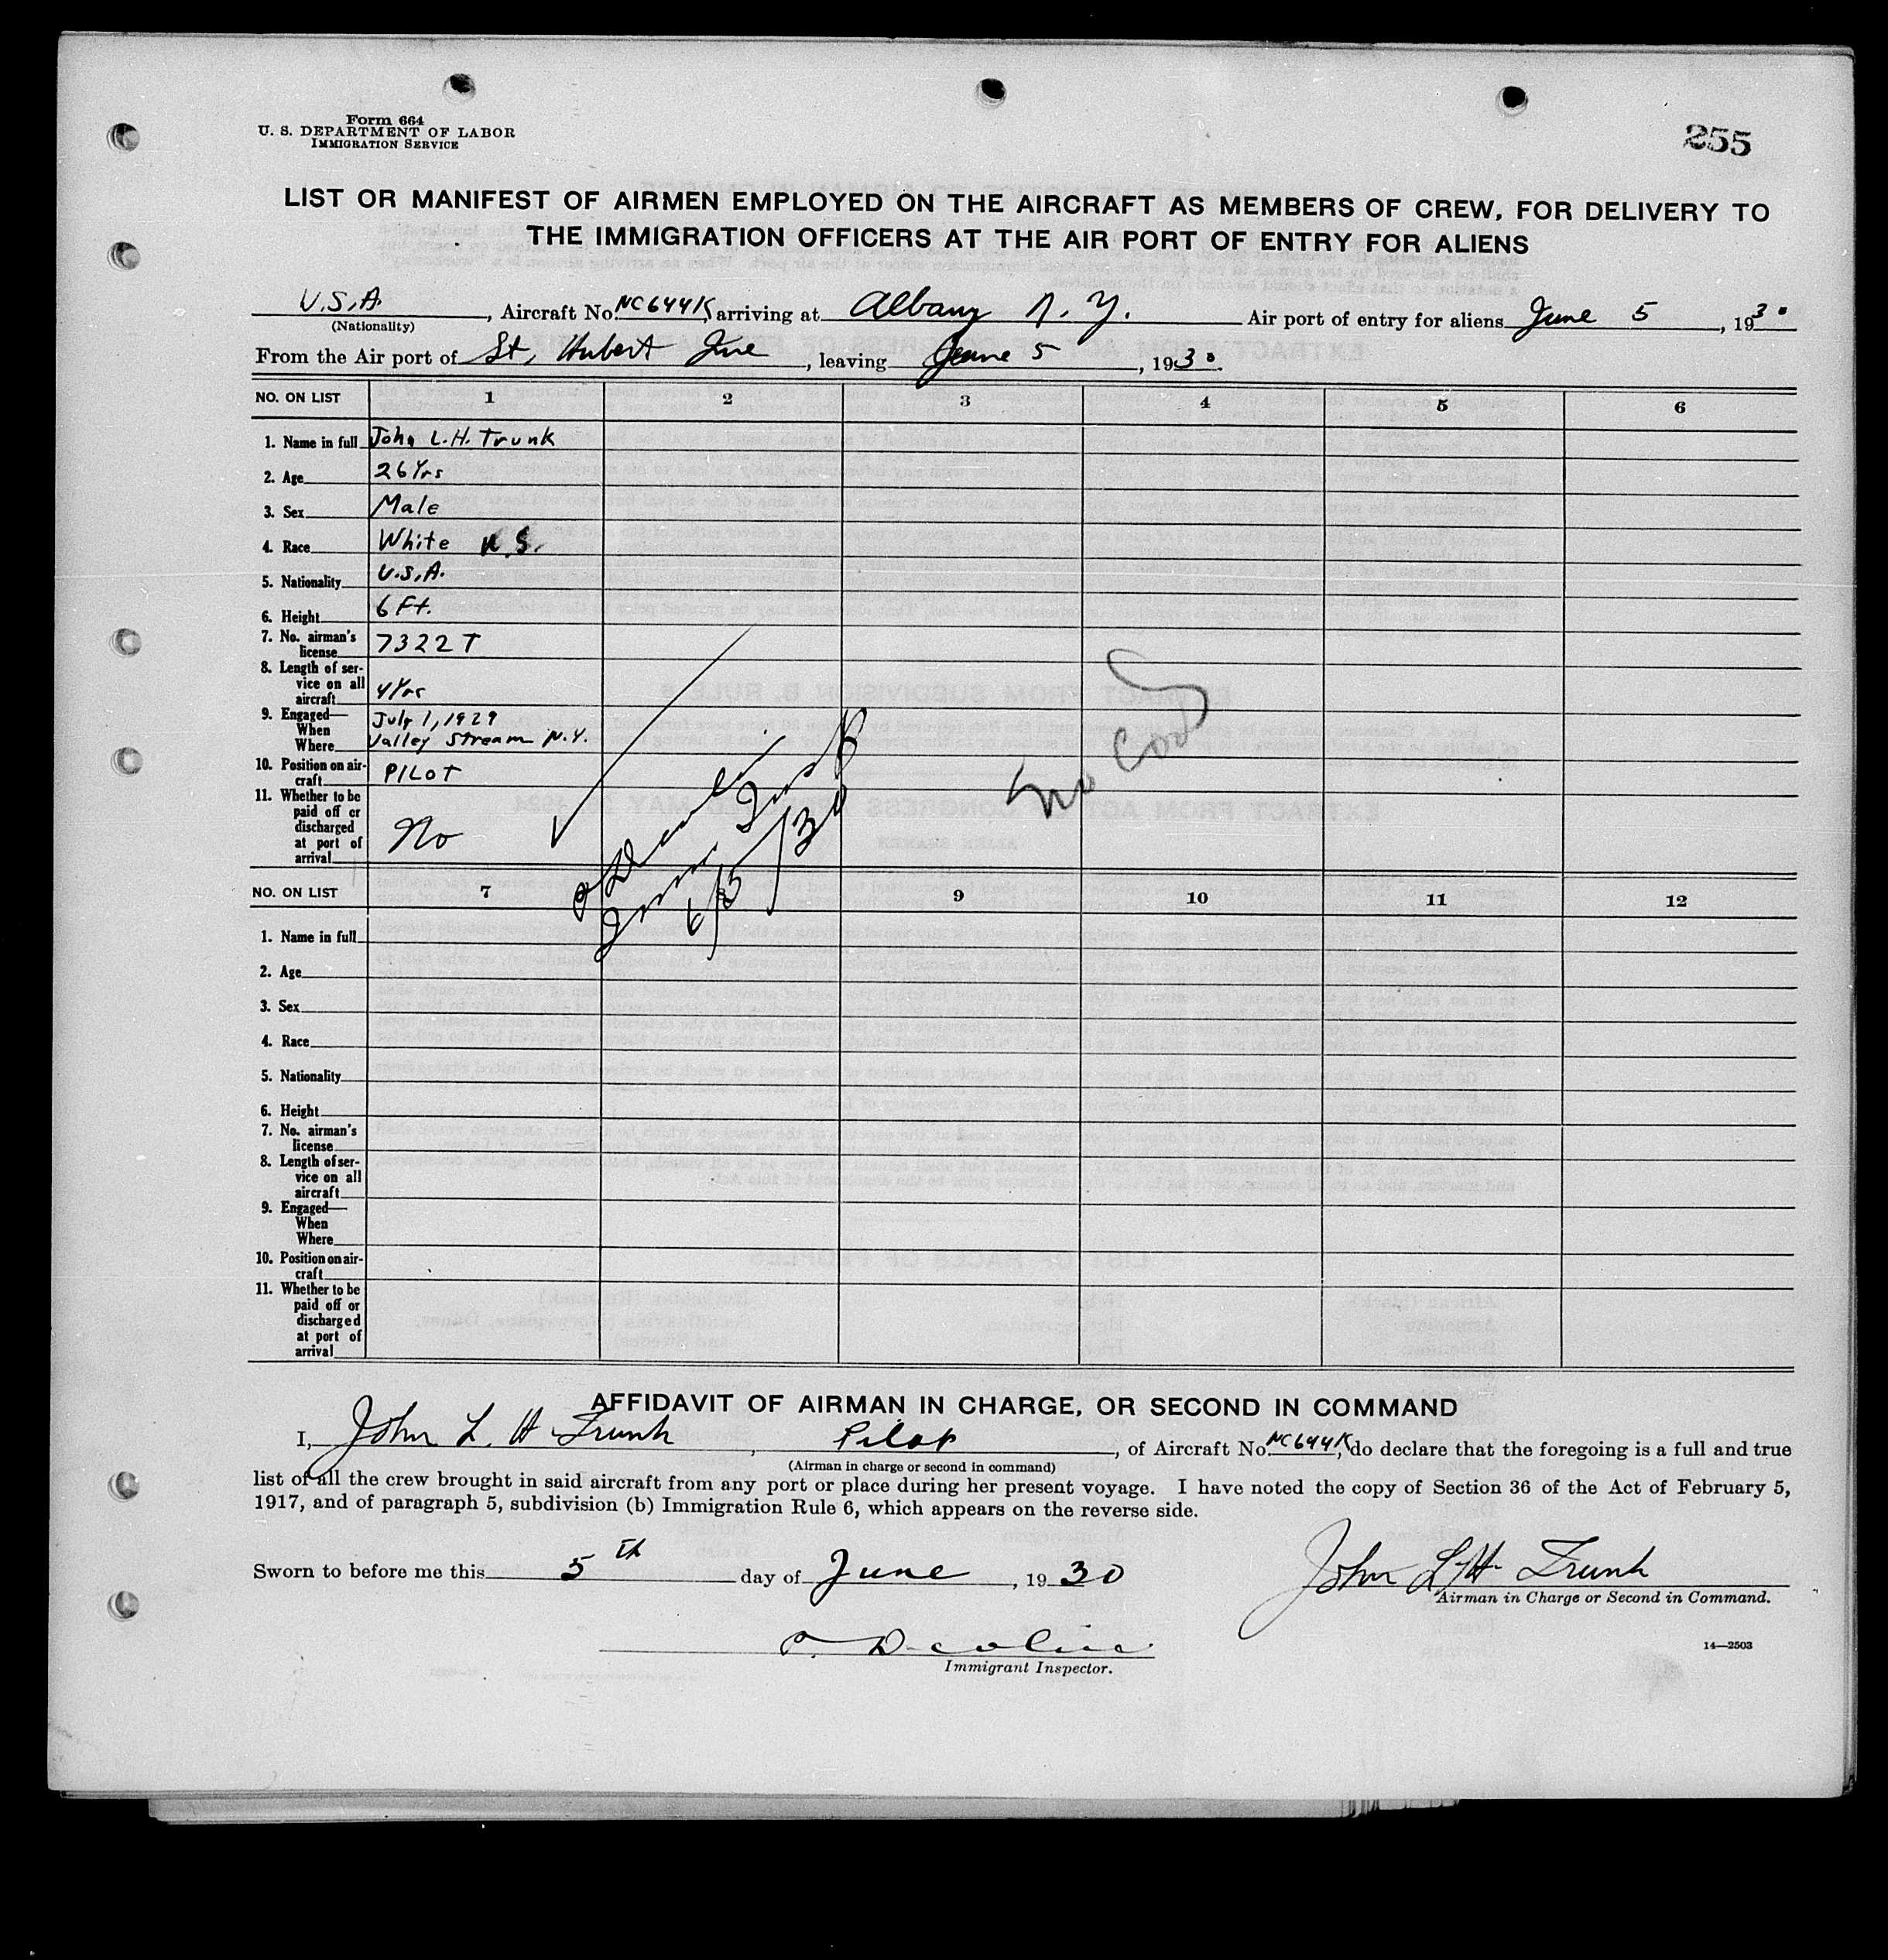 Form 664
U. S. DEPARTMENT OF LABOR
IMMIGRATION SERVICE
255
LIST OR MANIFEST OF AIRMEN EMPLOYED ON THE AIRCRAFT AS MEMBERS OF CREW, FOR DELIVERY TO
THE IMMIGRATION OFFICERS AT THE AIR PORT OF ENTRY FOR ALIENS
U.S.A. , Aircraft No. NC644K, arriving at Albany N.Y. Air port of entry for aliens June 5, 1930
(Nationality)
From the Air port of St. Hubert Que, leaving June 5, 1930.
NO. ON LIST 1 2 3 4 5 6
1. Name in full John L.H. Trunk
2. Age 26 Yrs
3. Sex Male
4. Race White
5. Nationality U.S.A.
6. Height 6 Ft.
7. No. airman's
license 7322 T
8. Length of ser-
vice on all
aircraft 4 Yrs
9. Engaged— July 1, 1929
When
Where Valley Stream N.Y.
10. Position on air-
craft PILOT
11. Whether to be
paid off or
discharged
at port of
arrival No
Imm. Insp
6/5/30
NO. ON LIST 7 8 9 10 11 12
1. Name in full
2. Age
3. Sex
4. Race
5. Nationality
6. Height
7. No. airman's
license
8. Length of ser-
vice on all
aircraft
9. Engaged—
When
Where
10. Position on air-
craft
11. Whether to be
paid off or
discharged
at port of
arrival
AFFIDAVIT OF AIRMAN IN CHARGE, OR SECOND IN COMMAND
I, John L. H. Trunk, Pilot, of Aircraft No. NC644K, do declare that the foregoing is a full and true
(Airman in charge or second in command)
list of all the crew brought in said aircraft from any port or place during her present voyage. I have noted the copy of Section 36 of the Act of February 5,
1917, and of paragraph 5, subdivision (b) Immigration Rule 6, which appears on the reverse side.
Sworn to before me this 5th day of June, 1930
John L. H. Trunk
Airman in Charge or Second in Command.
Immigrant Inspector.
14—2503